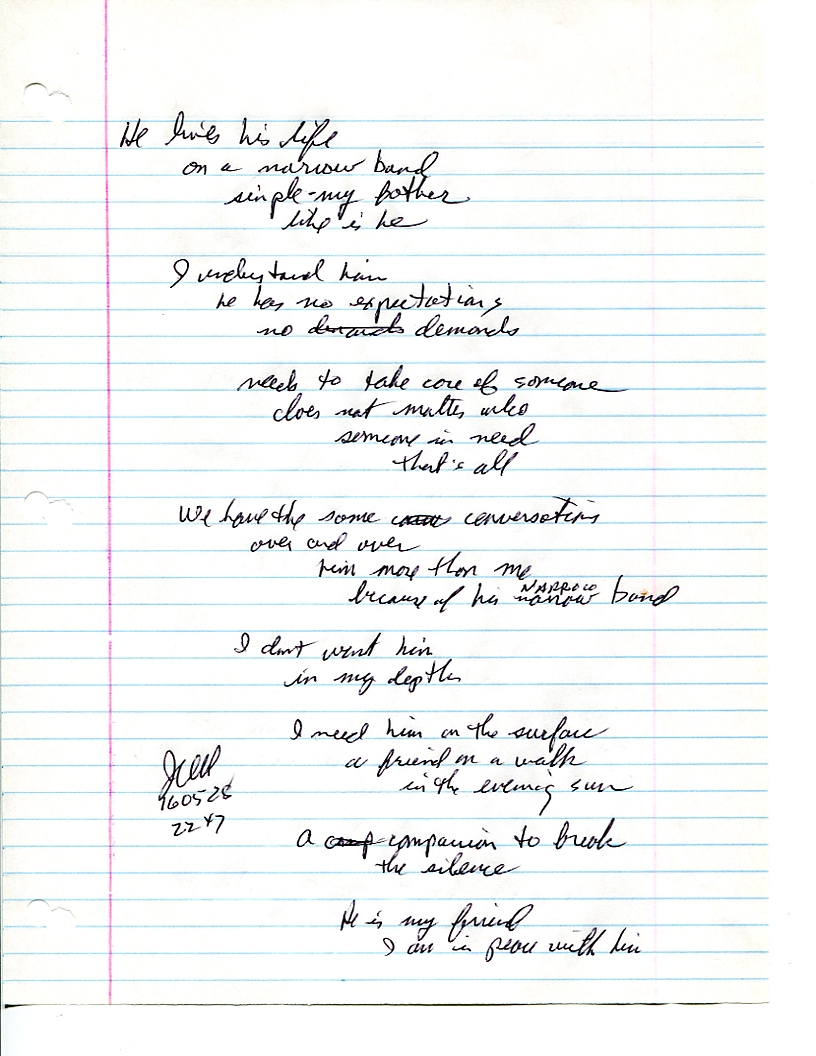 He lives his life
on a narrow band
simple-my father
like is he
I understand him
he has no expectations
no demands
needs to take care of someone
does not matter who
someone in need
that's all
We have the same conversations
over and over
him more than me
NARROW
because of his narrow band
I don't want him
in my depths
I need him on the surface
a friend on a walk
in the evening sun
960528
2247
A companion to break
the silence
He is my friend
I am in peace with him